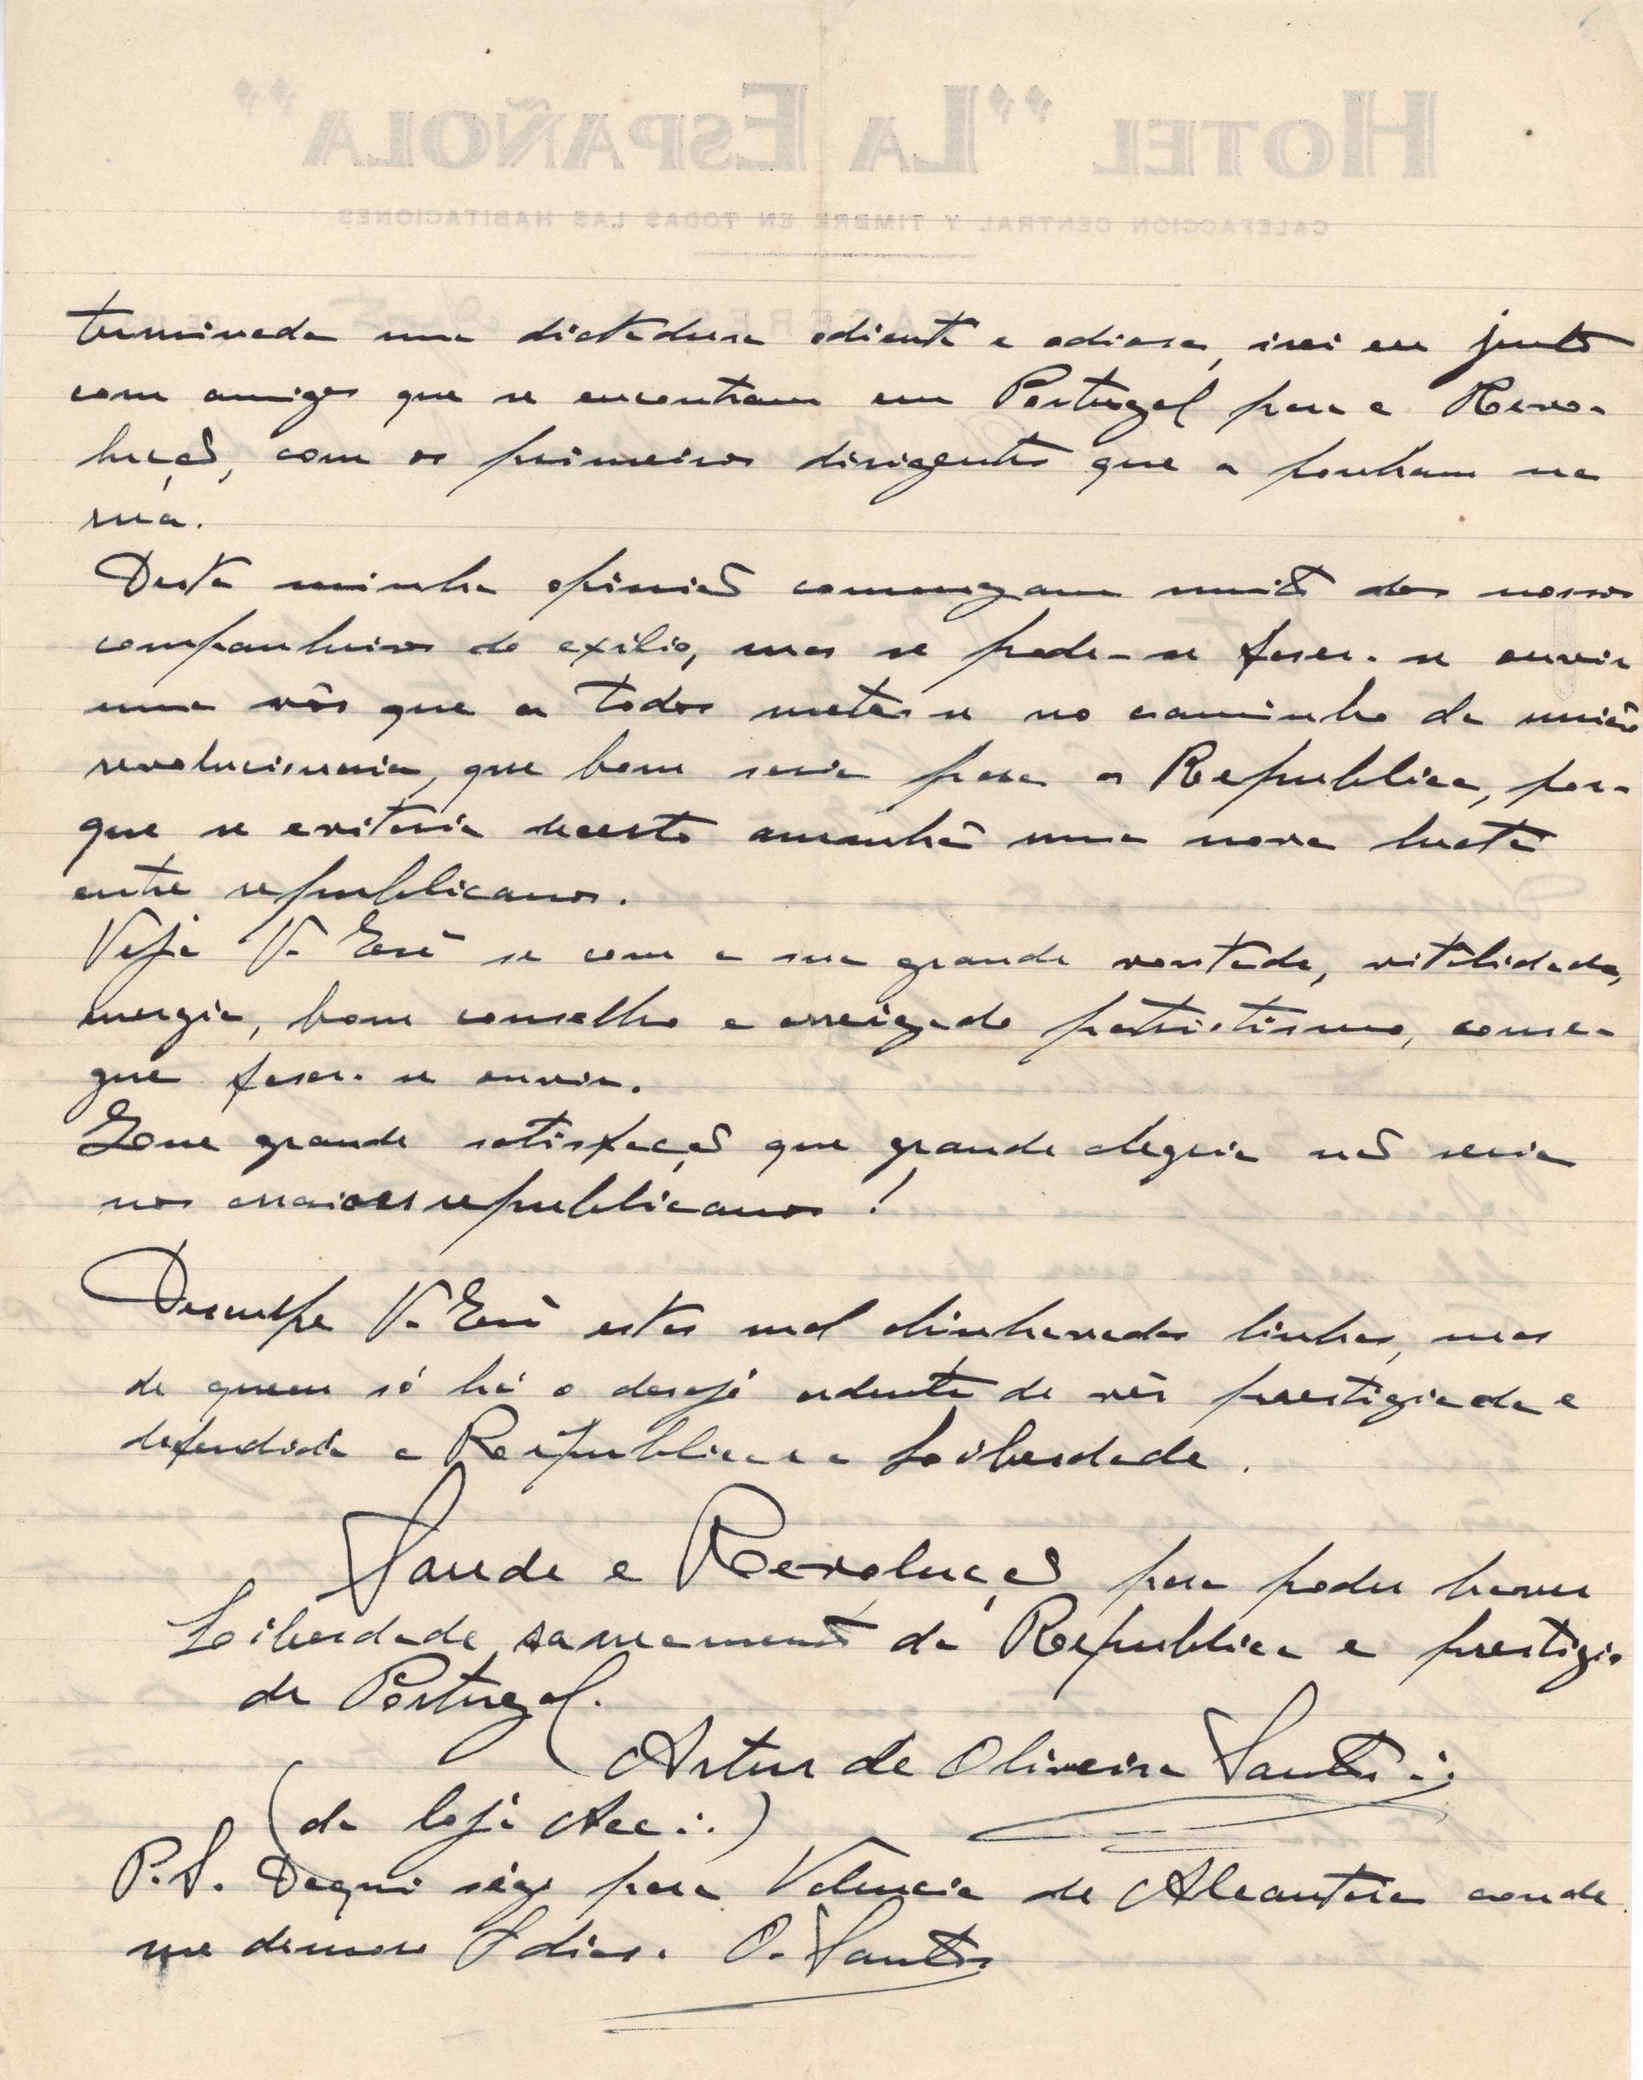 HOTEL "LA ESPAÑOLA"
CALEFACCION CENTRAL Y TIMBRE EN TODAS LAS HABITACIONES
terminada uma dictadura odienta e odiosa, irei eu junto
com amigos que se encontram em Portugal para a Revo-
lução, com os primeiros dirigentes que a ponham na
rua.
Desta minha opinião comungam muito dos nossos
companheiros do exilio, mas se pode-se faser-se ouvir
uma vôs que a todos metesse no caminho da união
revolucionaria, que bom seria para a Republica, por-
que se evitaria decerto amanhã uma nova lucta
entre republicanos.
Veja V. Exciª se com a sua grande vontade, vitalidade,
energia, bom conselho e arreigado patriotismo, conse-
gue faser-se ouvir.
Que grande satisfação que grande alegria não seria
nos arraiaes republicanos!
Desculpe V. Exciª estas mal alinhavadas linhas, mas
de quem só há o desejo ardente de vêr prestigiada e
defendida a Republica e a Loiberdade.
Saude e Revolução para poder haver
Loiberdade, saneamento da Republica e prestigio
de Portugal.
Artur de Oliveira Santos ∴
(da loja Acc∴)
P.S. Daqui sigo para Valencia de Alcantara aonde
me demoro 8 dias. O. Santos